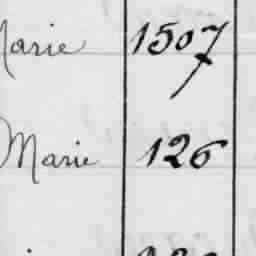 Marie 1507
Marie 126